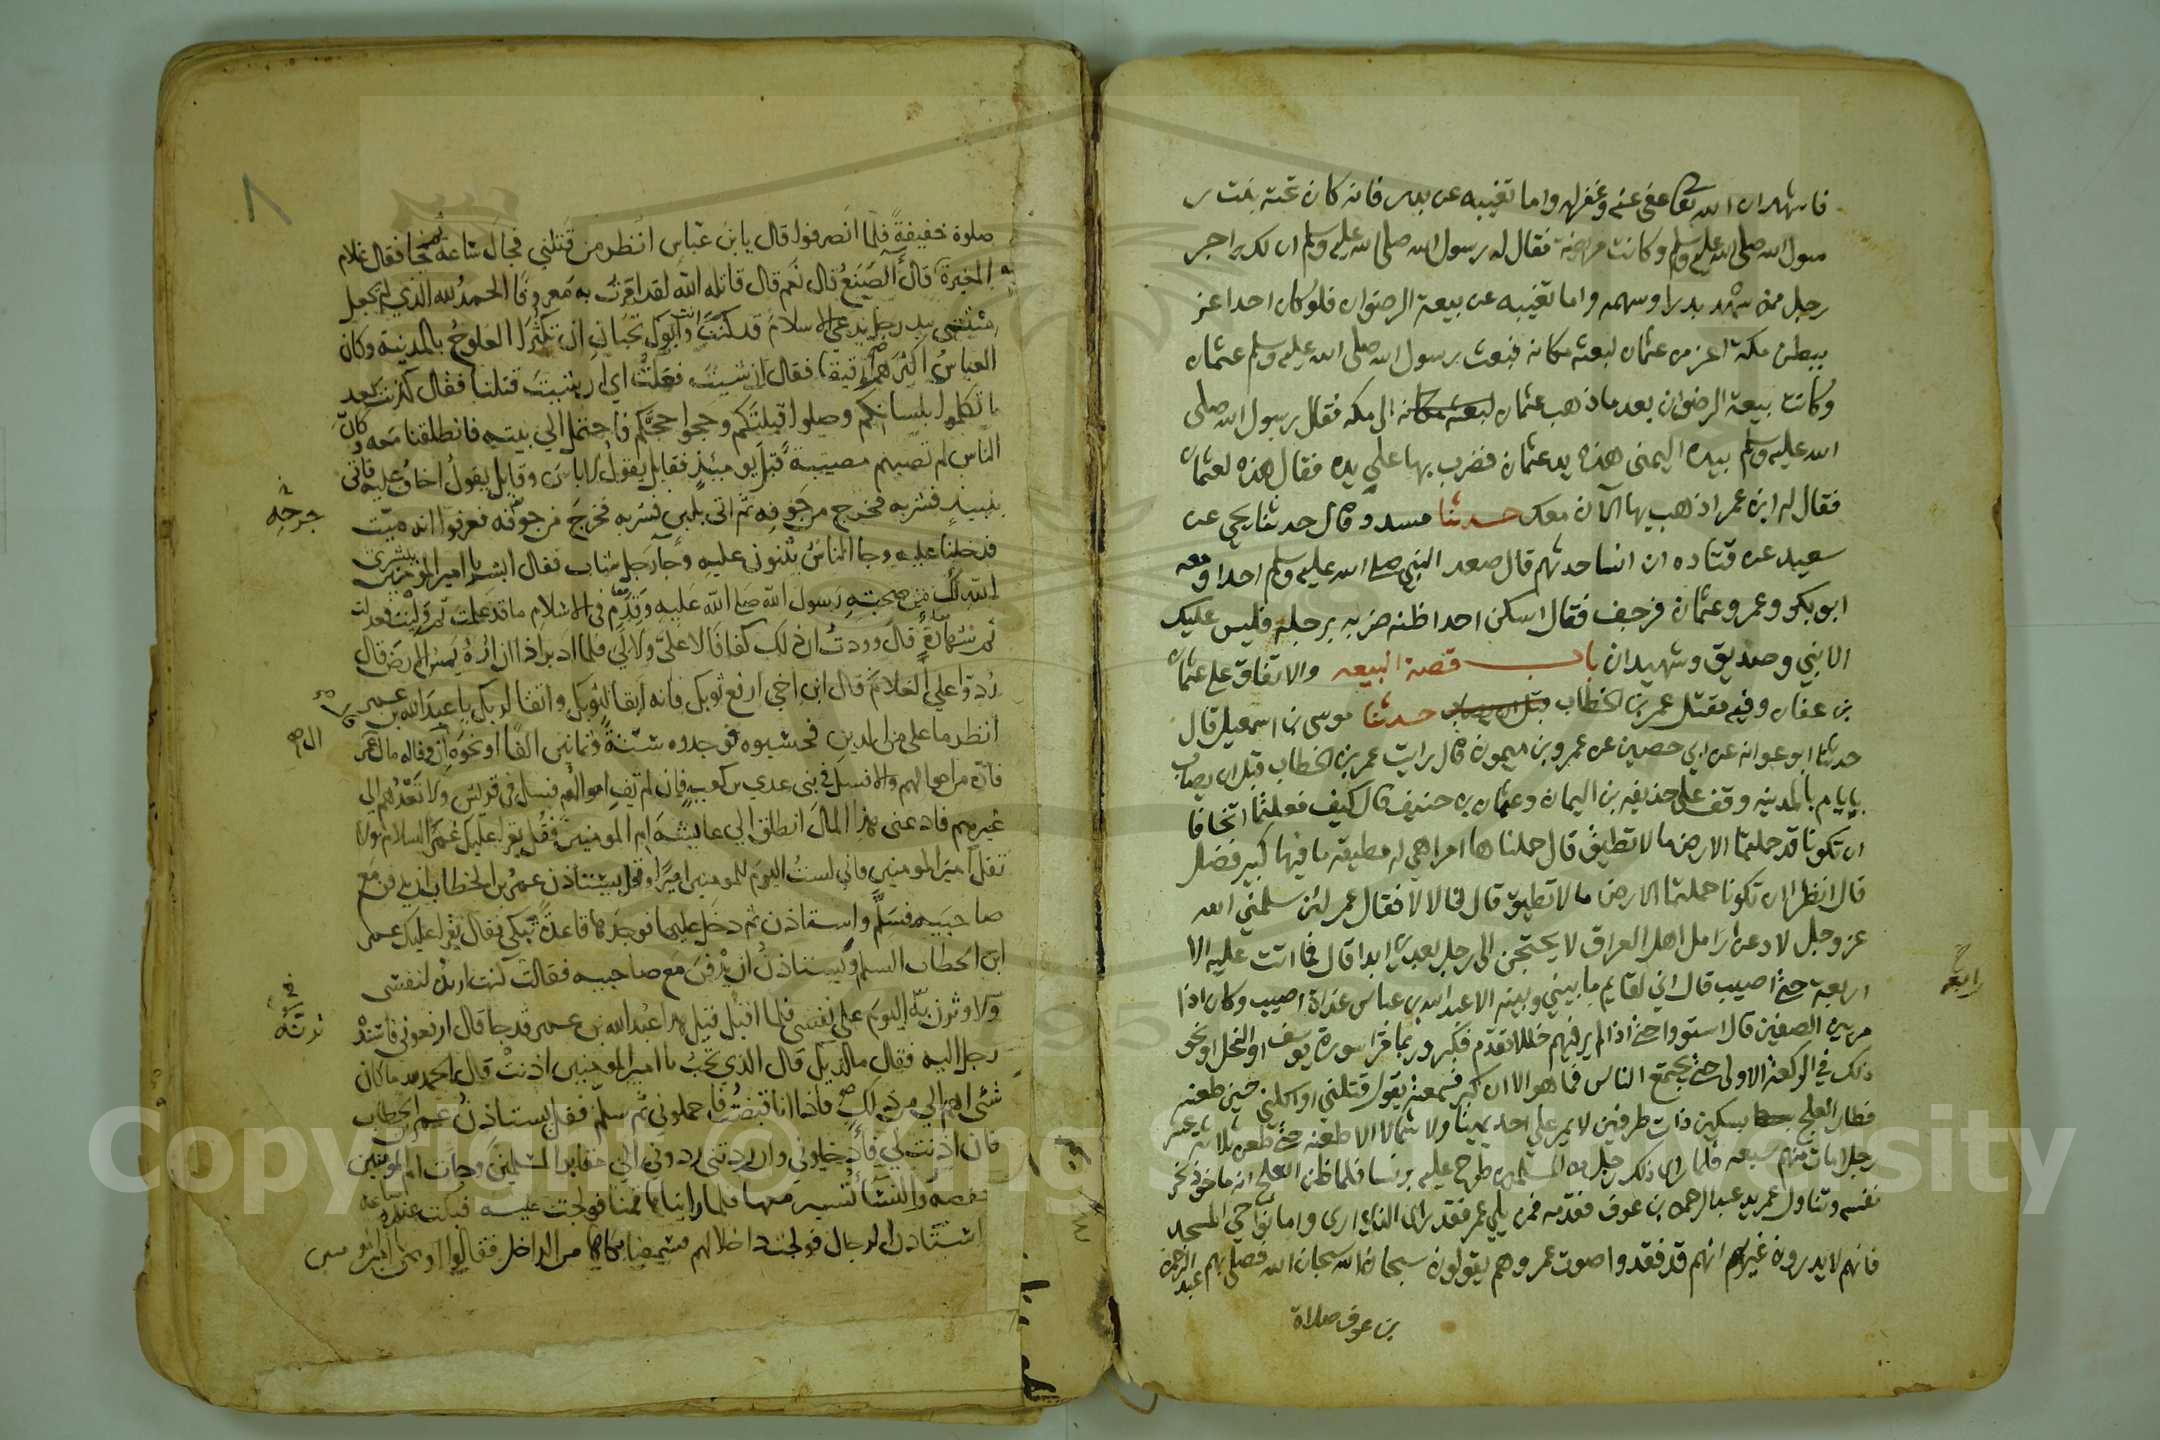 فاشهد ان الله تعا عفى عنه وغفر له واما تغيبه عن بدر فانه كان تحته بنت ر
سول الله صلى الله عليه وسلم وكانت مريضة فقال له رسول الله صلى الله عليه وسلم ان لك اجر
رجل ممن شهد بدرا وسهمه واما تغيبه عن بيعة الرضوان فلو كان احدا عز
ببطن مكة اعز من عثمان لبعثه مكانه فبعث رسول الله صلى الله عليه وسلم عثمان
وكانت بيعة الرضوان بعد ما ذهب عثمان لبعثه مكانه الى مكه فقال رسول الله صلى
الله عليه وسلم بيده اليمنى هذه يد عثمان فضرب بها على يده فقال هذه لعثمان
فقال له ابن عمر اذهب بها الآن معك حدثنا مسدد قال حدثنا يحيى عن
سعيد عن قتاده ان انسا حدثهم قال صعد النبي صلى الله عليه وسلم احدا ومعه
ابو بكر وعمر وعثمان فرجف فقال اسكن احد اظنه ضربه برجله فليس عليك
الا نبي وصديق وشهيدان باب قصة البيعه والاتفاق على عثمان
بن عفان وفيه مقتل عمر بن الخطاب قبل ان يصاب حدثنا موسى بن اسمعيل قال
حدثنا ابو عوانه عن ابي حصين عن عمرو بن ميمون قال رايت عمر بن الخطاب قبل ان يصاب
بايام بالمدينه وقف على حذيفه بن اليمان وعثمان بن حنيف قال كيف فعلتما اتخافا
ان تكونا قد حملتما الارض ما لا تطيق قال حملناها امرا هي له مطيقه ما فيها كبير فضل
قال انظرا ان تكونا حملتما الارض ما لا تطيق قال قالا لا فقال عمر لئن سلمني الله
عز وجل لادعن ارامل اهل العراق لا يحتجن الى رجل بعدي ابدا قال فما اتت عليه الا
رابعة
اربعة حتى اصيب قال اني لقايم ما بيني وبينه الا عبد الله بن عباس غداة اصيب وكان اذا
مر بين الصفين قال استووا حتى اذا لم ير فيهم خللا تقدم فكبر وربما قرا سورة يوسف او النحل او نحو
ذلك في الركعة الاولى حتى يجتمع الناس فما هو الا ان كبر فسمعته يقول قتلني او اكلني حين طعنه
فطار العلج بسكين ذات طرفين لا يمر على احد يمينا ولا شمالا الا طعنه حتى طعن ثلاثة عشر
رجلا مات منهم سبعه فلما راى ذلك رجل من المسلمين طرح عليه برنسا فلما ظن العلج انه ماخوذ نحر
نفسه وتناول عمر يد عبد الرحمن بن عوف فقدمه فمن يلي عمر فقد راى الذي ارى واما نواحي المسجد
فانهم لا يدرون غير انهم قد فقدوا صوت عمر وهم يقولون سبحان الله سبحان الله فصلى بهم عبد الرحمن
بن عوف صلاة
٨
صلوة خفيفة فلما انصرفوا قال يا بن عباس انظر من قتلني فجال ساعة ثم جا فقال غلام
المغيرة قال الصنع قال نعم قال قاتله الله لقد امرت به معروفا الحمد لله الذي لم يجعل
ميتتي بيد رجل يدعي الاسلام قد كنت انت وابوك تحبان ان تكثر العلوج بالمدينة وكان
العباس اكثرهم رقيقا فقال ان شيت فعلت اي ان شيت قتلنا فقال كذبت بعد
ما تكلموا بلسانكم وصلوا قبلتكم وحجوا حجكم فاحتمل الي بيته فانطلقنا معه وكان
الناس لم تصبهم مصيبة قبل يومئذ فقايل يقول لا باس وقايل يقول اخاف عليه فاتى
بنبيذ فشربه فخرج من جوفه ثم اتى بلبن فشربه فخرج من جوفه فعرفوا انه ميت
جرحه
فدخلنا عليه وجا الناس يثنون عليه وجا رجل شاب فقال ابشر يا امير المومنين ببشرى
الله لك من صحبة رسول الله صلى الله عليه وقدم في الاسلام ما قد علمت ثم وليت فعدلت
ثم شهادة قال وددت ان ذلك كفافا لا علي ولا لي فلما ادبر اذا ازاره يمس الارض قال
ردوا علي الغلام قال ابن اخي ارفع ثوبك فانه ابقا لثوبك واتقا لربك يا عبد الله بن عمر
انظر ما علي من الدين فحسبوه فوجدوه ستة وثمانين الفا او نحوه ان وفا له مال ال عمر
فاده من اموالهم والا فسل في بني عدي بن كعب فان لم تف اموالهم فسل في قريش ولا تعدهم الي
غيرهم فاد عني هذا المال انطلق الي عايشه ام المومنين فقل يقرا عليك عمر السلام ولا
تقل امير المومنين فاني لست اليوم للمومنين اميرا وقل يستاذن عمر بن الخطاب ان يدفن مع
صاحبيه فسلم واستاذن ثم دخل عليها فوجدها قاعدة تبكي فقال يقرا عليك عمر
ابن الخطاب السلم ويستاذن ان يدفن مع صاحبيه فقالت كنت اريده لنفسي
ولاوثرن به اليوم على نفسي فلما اقبل قيل هذا عبد الله بن عمر قد جا قال ارفعوني فاسند
رجل اليه فقال ما لديك قال الذي تحب يا امير المومنين اذنت قال الحمد لله ما كان
شئ اهم الي من ذلك فاذا انا قبضت فاحملوني ثم سلم فقل يستاذن عمر بن الخطاب
فان اذنت لي فادخلوني وان ردتني ردوني الي مقابر المسلمين وجات ام المومنين
حفصة والنسا تسير معها فلما رايناها قمنا فولجت عليه فبكت عنده ساعة
استاذن الرجال فولجت داخلا لهم فسمعنا بكاها من الداخل فقالوا اوص يا امير المومنين
Copyright © King Saud University
1957